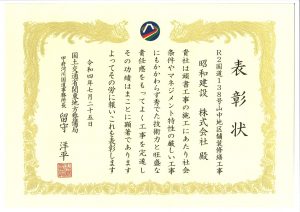 表彰状
R2国道138号山中地区舗装修繕工事
昭和建設 株式会社 殿
貴社は頭書工事の施工にあたり社会
条件やマネジメント特性の厳しい工事
にもかかわらず秀でた技術力と旺盛な
責任感をもってよく工事を完遂し
その功績はまことに顕著であります
よってその労に報いこれを表彰します
令和四年七月二十五日
国土交通省関東地方整備局
甲府河川国道事務所長
留守 洋平